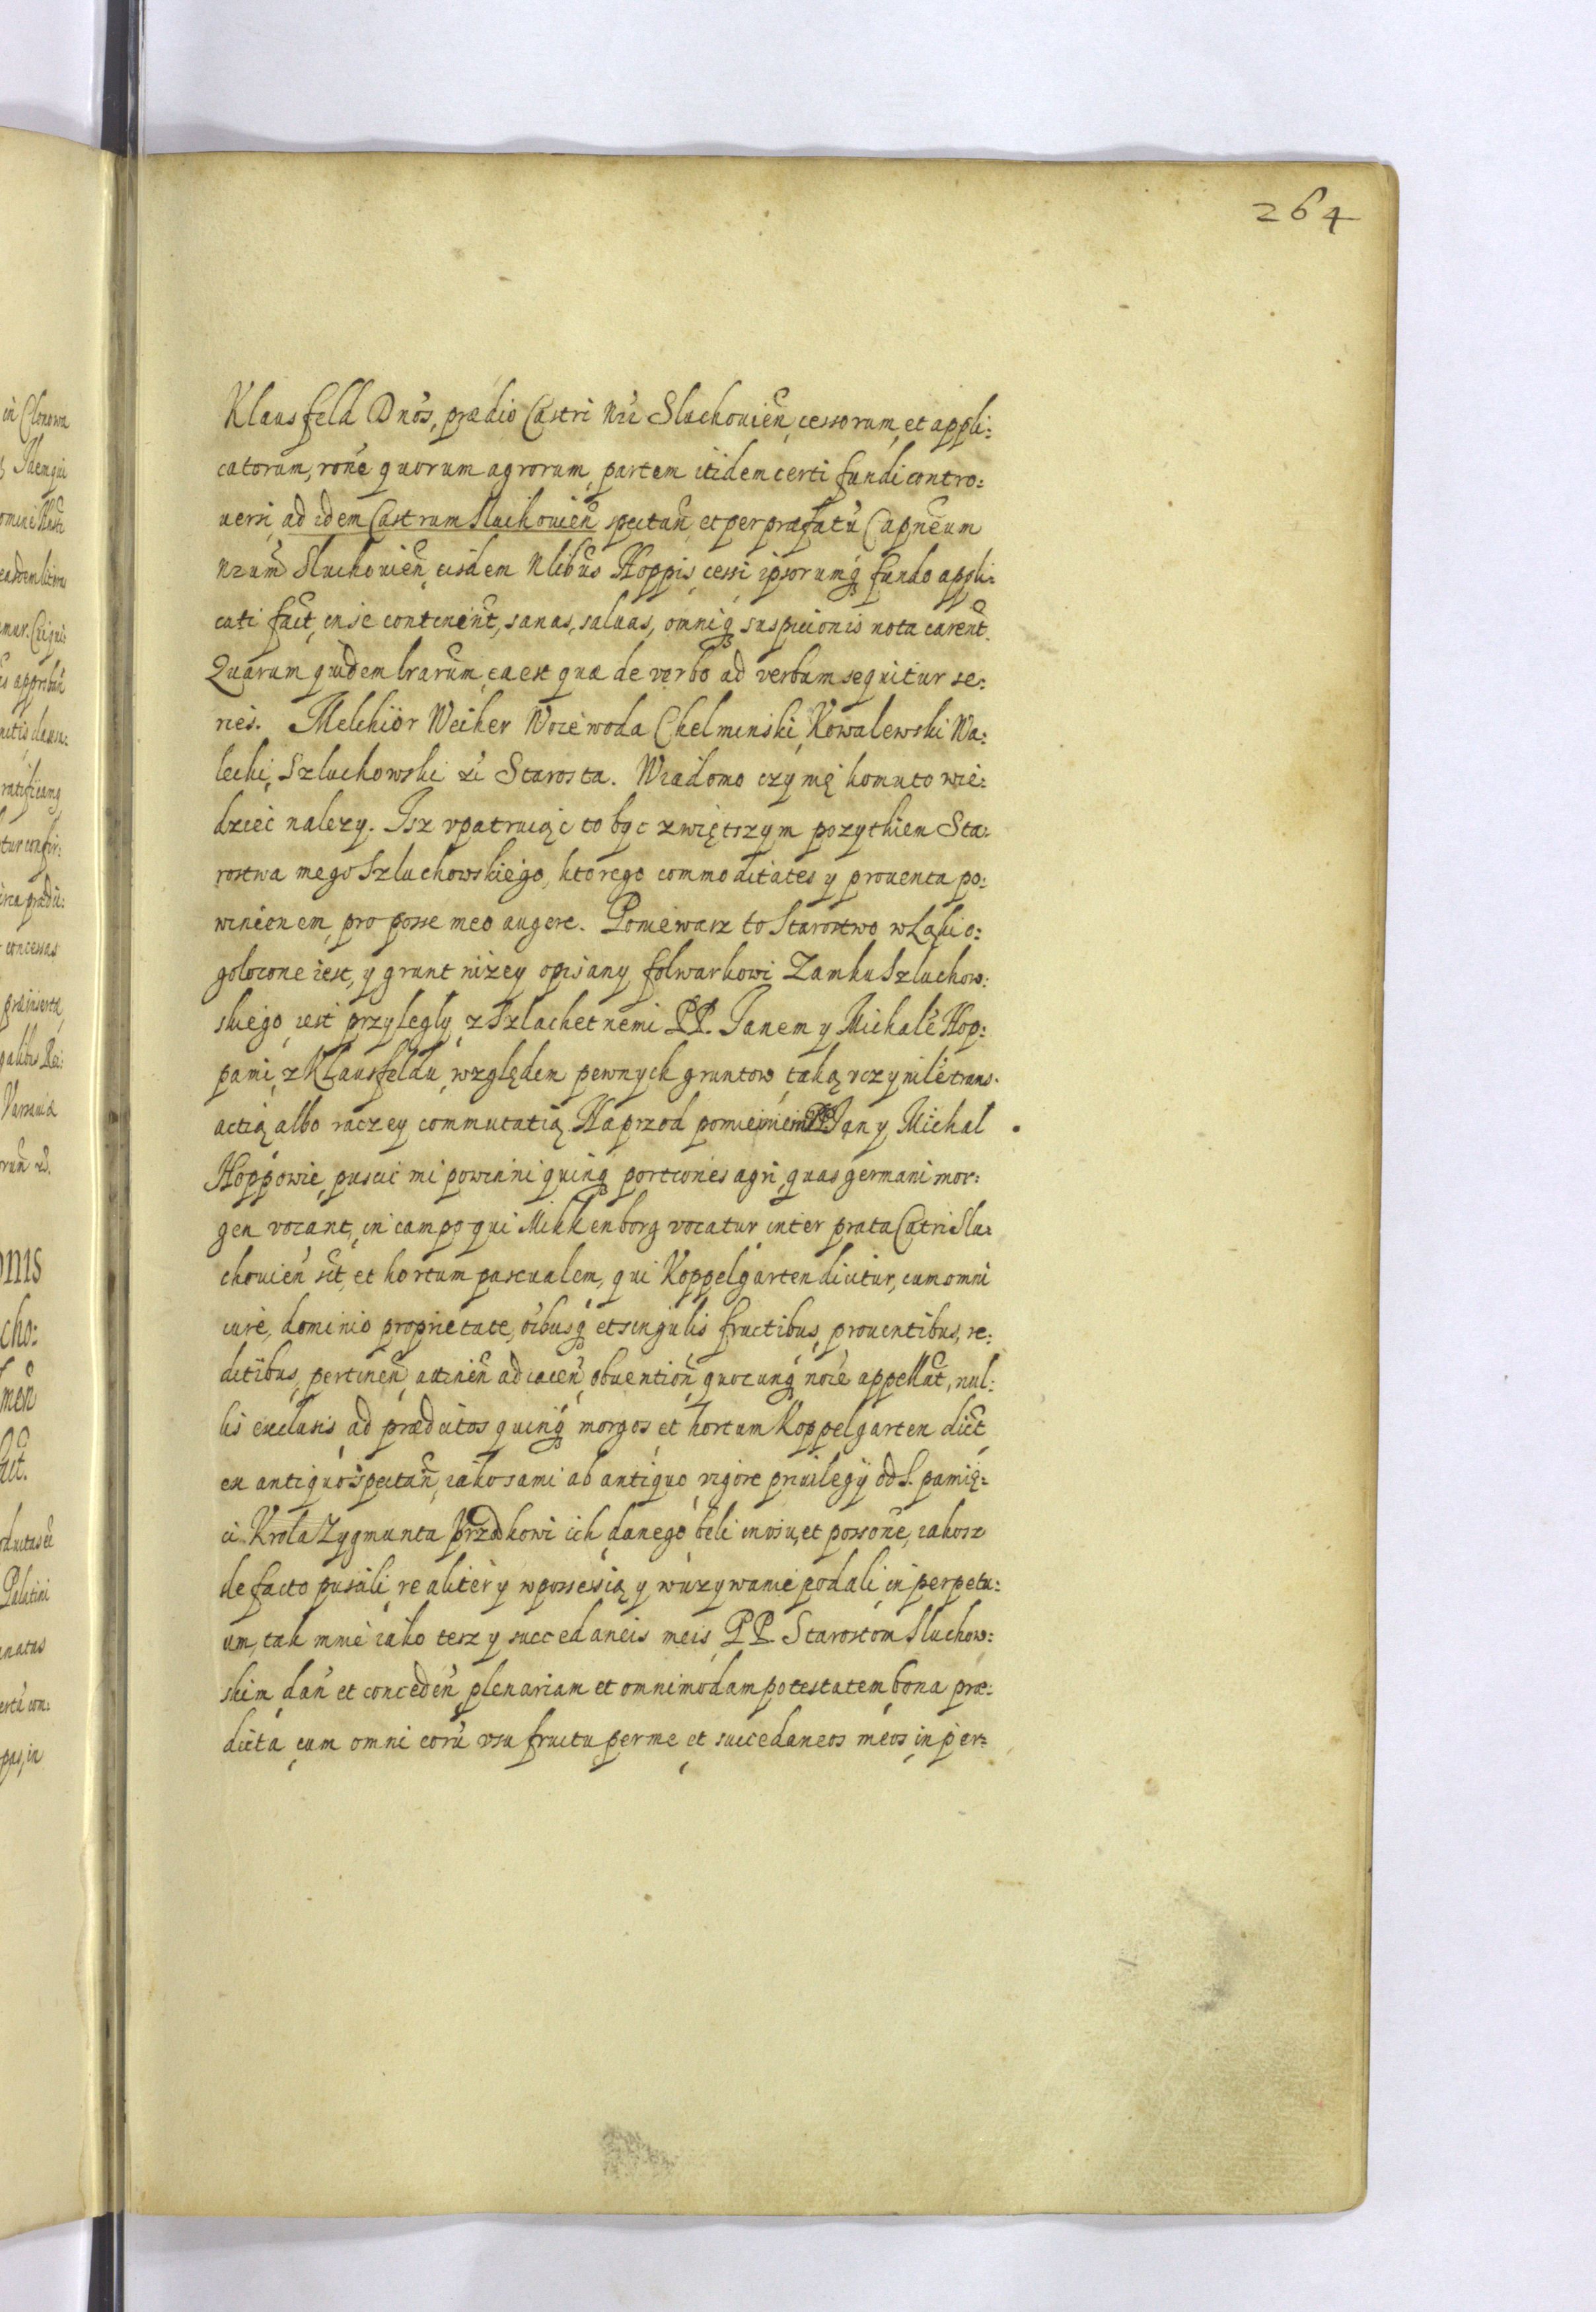 264
Klausfeld Dnos, prædio Castri nri Sluchouien̄, cessorum, et appli:
catorum, rone quorum agrorum, partem itidem certi fundi contro:
uersi, ad idem Castrum Sluchouien̄ spectan̄ et per præfatū Capneum
nrum Sluchouien̄ eisdem Nlibus Hoppis, cessi ipsorumq fundo appli:
cati fact, in se continent, sanas, saluas, omniq suspicionis nota carent.
Quarum quidem lrarum, ea est quæ de verbo ad verbum sequitur se:
ries. Melchior Weiher Woiewoda Chelminski, Kowalewski Wa:
lecki, Szluchowski zc Starosta. Wiadomo czynię komu to wie:
dzieć nalezy. Isz vpatruiąc to byc zwiętszym pozytkiem Sta:
rostwa mego Szluchowskiego, ktorego commoditates y prouenta po:
winienem, pro posse meo augere. Poniewasz to Starostwo wLąki o:
golocone iest, y grunt nizey opisany folwarkowi Zamku Szluchow:
skiego, iest przylegly, z Szlachetnemi PP. Janem y Michalē Hop:
pami, z Klausfeldu, względem pewnych gruntow, taką vczynilē trans:
actią albo raczey commutatią. Naprzod pomienieni PP. Jan y Michal
Hoppowie, puscić mi powinni quinq portiones agri, quas germani mor:
gen vocant, in campo qui Mikkenborg vocatur, inter prata Catri Slu:
chouien̄ sit, et hortum pascualem, qui Koppelgarten dicitur, cum omni
iure, dominio proprietate, oibusq et singulis fructibus, prouentibus, re:
ditibus, pertinen̄, attinen̄ adiacen̄, obuention̄ quocunq noie appellat, nul:
lis exclusis, ad prædictos quinq morgos et hortum Koppelgarten dict
ex antiquo spectan̄, iako sami ab antiquo, vigore priuilegÿ od S. pamię:
ci Krola Zygmunta przodkowi ich danego, beli in vsu, et possone, iakosz
de facto puscili, realiter y w possessią y w uzywanie podali, in perpetu:
um, tak mnie iako tesz y succedaneis meis, PP. Starostom Sluchow:
skim, dan̄ et conceden̄, plenariam et omnimodam potestatem, bona præ:
dicta, cum omni eorū vsu fructu, per me, et succedaneos meos, in per: